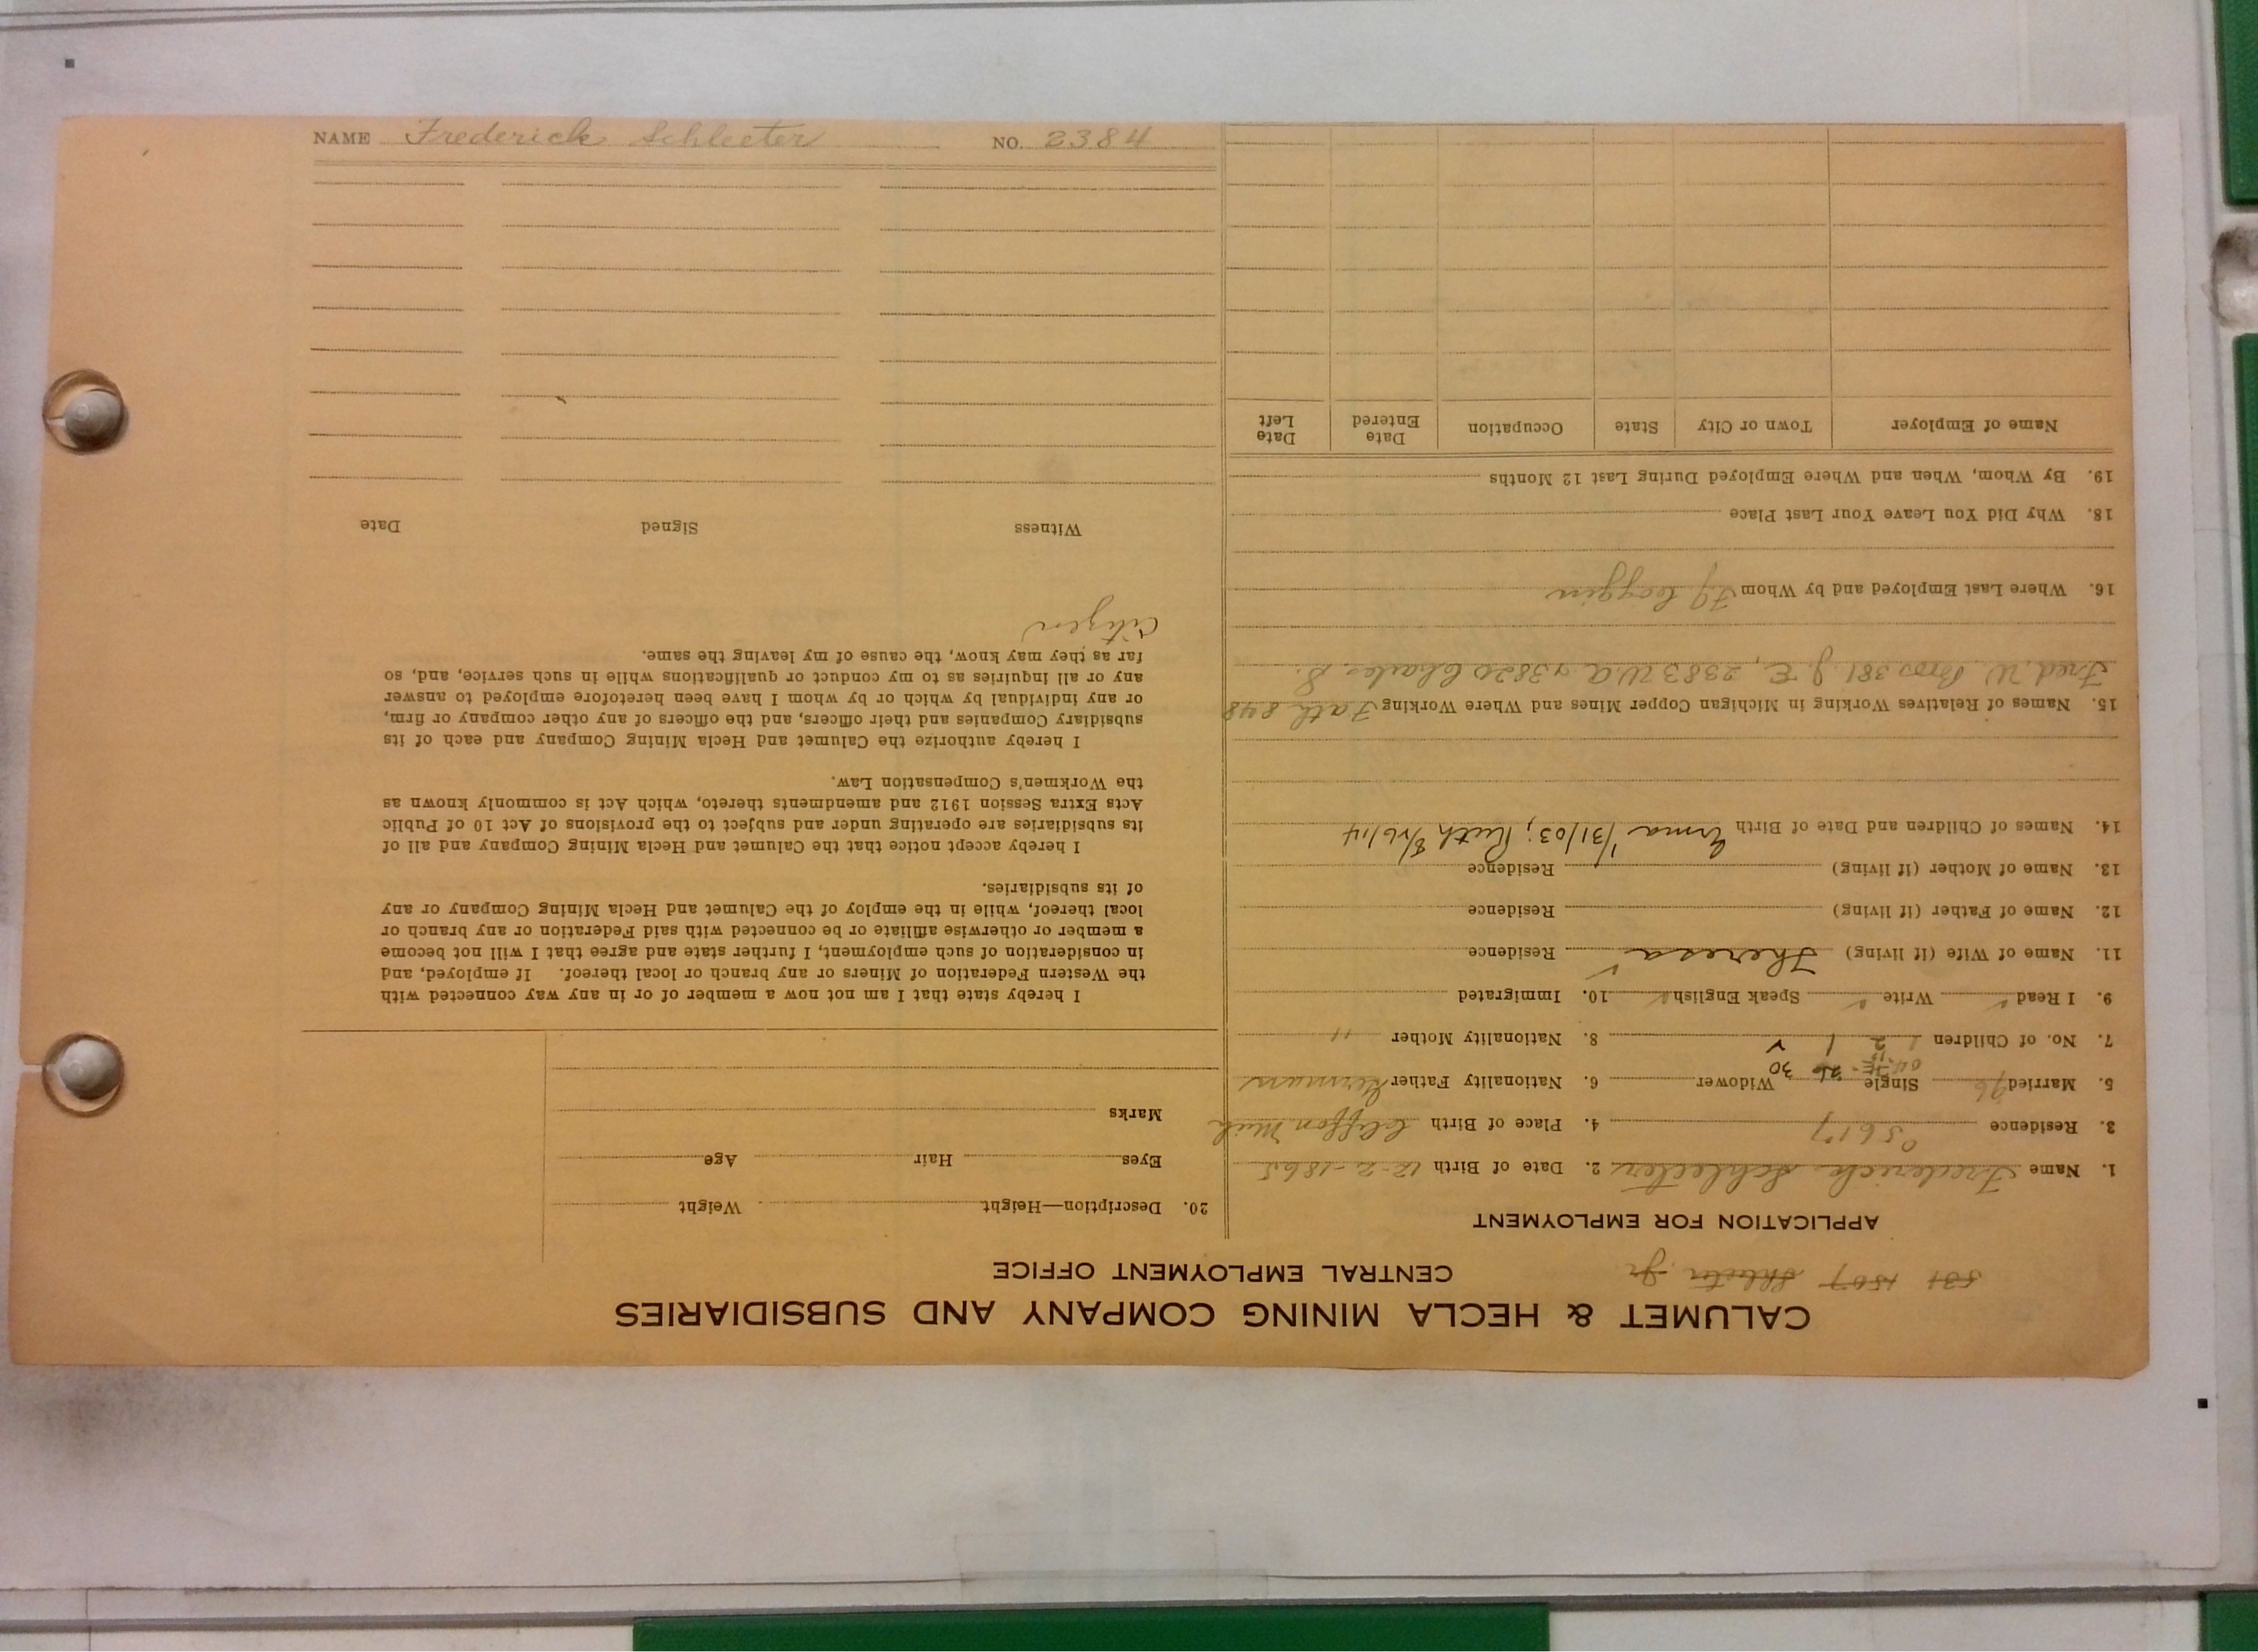 CALUMET & HECLA MINING COMPANY AND SUBSIDIARIES
CENTRAL EMPLOYMENT OFFICE
531 1507 Jr
APPLICATION FOR EMPLOYMENT
1. Name Frederick Schleeter 2. Date of Birth 12-2-1865
3. Residence 4. Place of Birth Cliffon Mich
5. Married Single Widower 30 6. Nationality Father German
7. No. of Children 1 2 1 8. Nationality Mother "
9. I Read ✓ Write ✓ Speak English ✓ 10. Immigrated
11. Name of Wife (if living) Theresa Residence
12. Name of Father (if living) Residence
13. Name of Mother (if living) Residence
14. Names of Children and Date of Birth Erma 1/31/03; Ruth 8/26/14
15. Names of Relatives Working in Michigan Copper Mines and Where Working Fath 848
Fred. W. Bros 381 J. E, 2383 W.A & 3820 Charles S.
16. Where Last Employed and by Whom
18. Why Did You Leave Your Last Place
19. By Whom, When and Where Employed During Last 12 Months
Name of Employer Town or City State Occupation Date Entered Date Left
20. Description—Height Weight
Eyes Hair Age
Marks
I hereby state that I am not now a member of or in any way connected with
the Western Federation of Miners or any branch or local thereof. If employed, and
in consideration of such employment, I further state and agree that I will not become
a member or otherwise affiliate or be connected with said Federation or any branch or
local thereof, while in the employ of the Calumet and Hecla Mining Company or any
of its subsidiaries.
I hereby accept notice that the Calumet and Hecla Mining Company and all of
its subsidiaries are operating under and subject to the provisions of Act 10 of Public
Acts Extra Session 1912 and amendments thereto, which Act is commonly known as
the Workmen's Compensation Law.
I hereby authorize the Calumet and Hecla Mining Company and each of its
subsidiary Companies and their officers, and the officers of any other company or firm,
or any individual by which or by whom I have been heretofore employed to answer
any or all inquiries as to my conduct or qualifications while in such service, and, so
far as they may know, the cause of my leaving the same.
Citizen
Witness Signed Date
NAME Frederick Schleeter NO. 2384